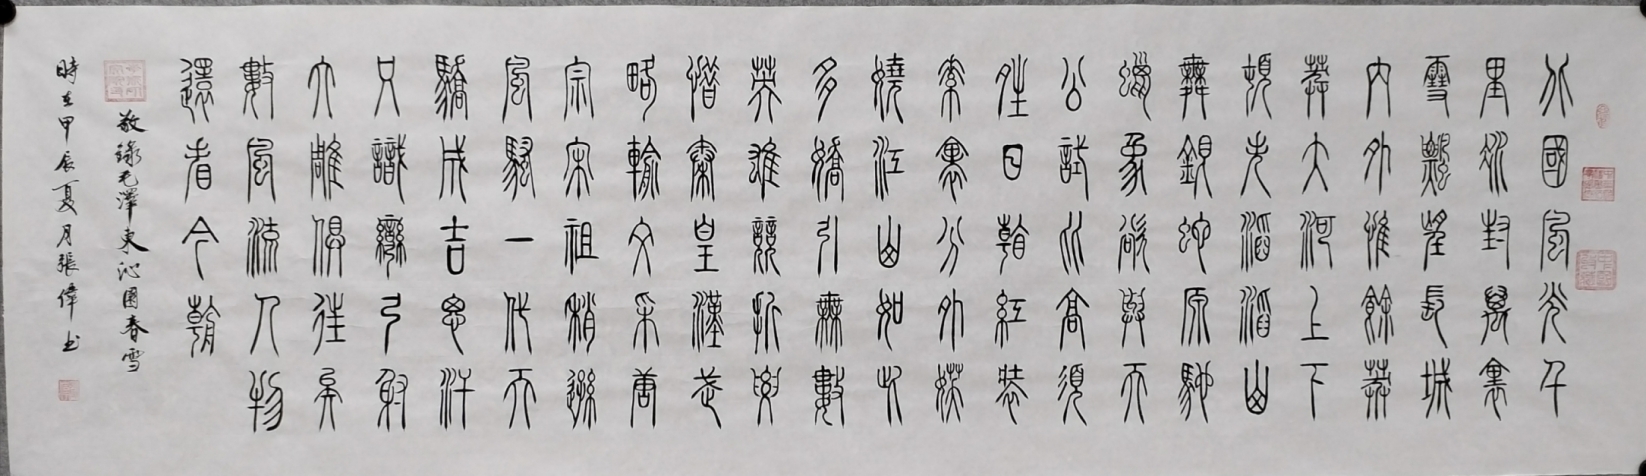 北國風光千
里冰封萬裏
雪飄望長城
内外惟餘莽
莽大河上下
頓失滔滔山
舞銀蛇原馳
蠟象欲與天
公試比高須
晴日看紅裝
素裹分外妖
嬈江山如此
多嬌引無數
英雄競折腰
惜秦皇漢武
略輸文采唐
宗宋祖稍遜
風騷一代天
驕成吉思汗
只識彎弓射
大雕俱往矣
數風流人物
還看今朝
敬錄毛澤東沁園春雪
時在甲辰夏月張偉書